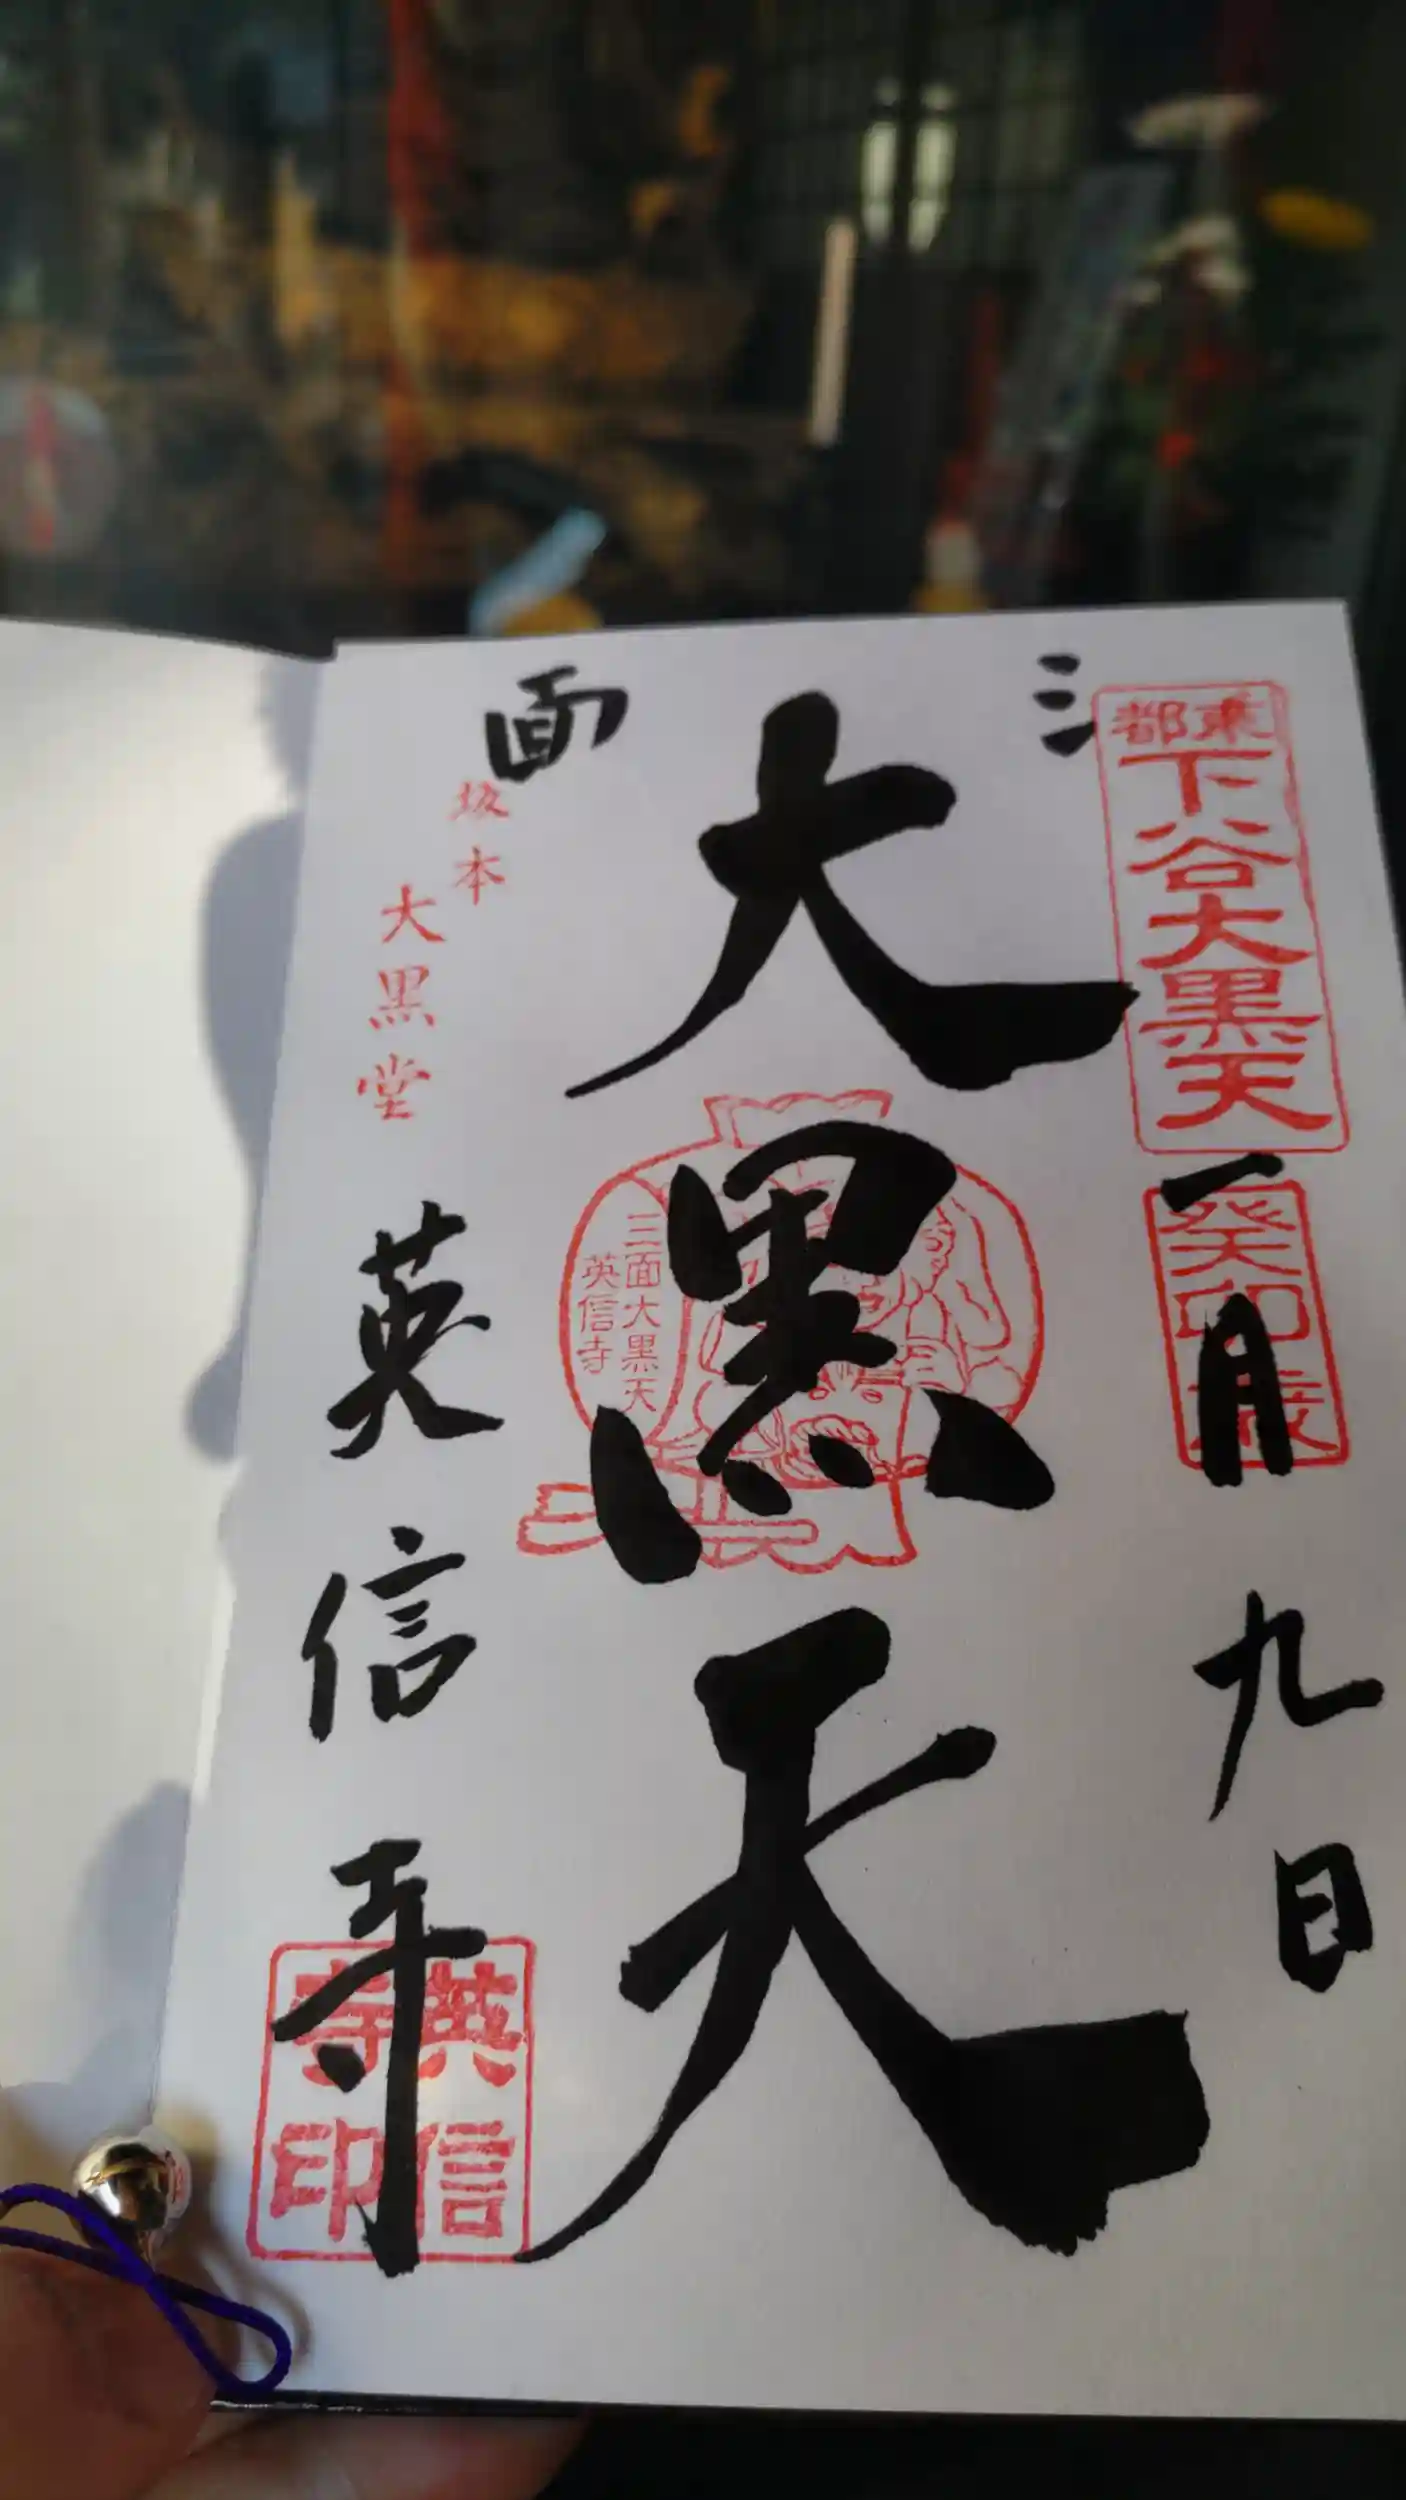 三
面
東都
下谷大黒天
癸卯歳
一月九日
大黒天
三面大黒天
英信寺
坂本
大黒堂
英信寺
英信
寺印